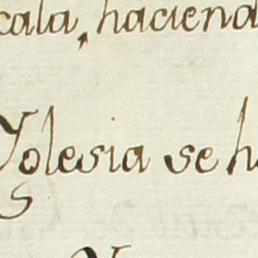 cala, haciend
Yglesia se h